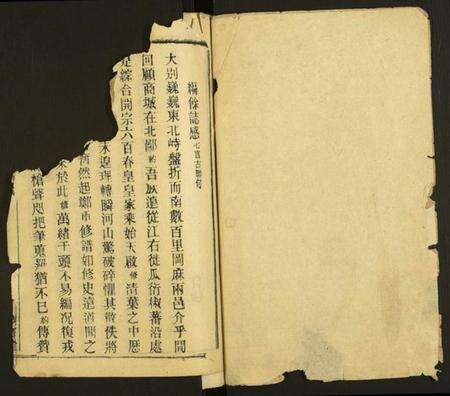 編餘誌感 七言古體句
大別巍巍東北峙盤折而南數百里岡麻兩邑介乎間
回顧商城在北鄙 吾族遠從江右徙瓜衍椒蕃沿處
是綜合開宗六百春皇皇家乘始天啟修清葉之中歷
未遑理轉瞬河山驚破碎懼其散佚將
洒然起鄭市修譜如修史遠溯開之
於此修萬緒千頭不易編況復戎
槍聲咫把筆蒐羅猶未已 傳贊